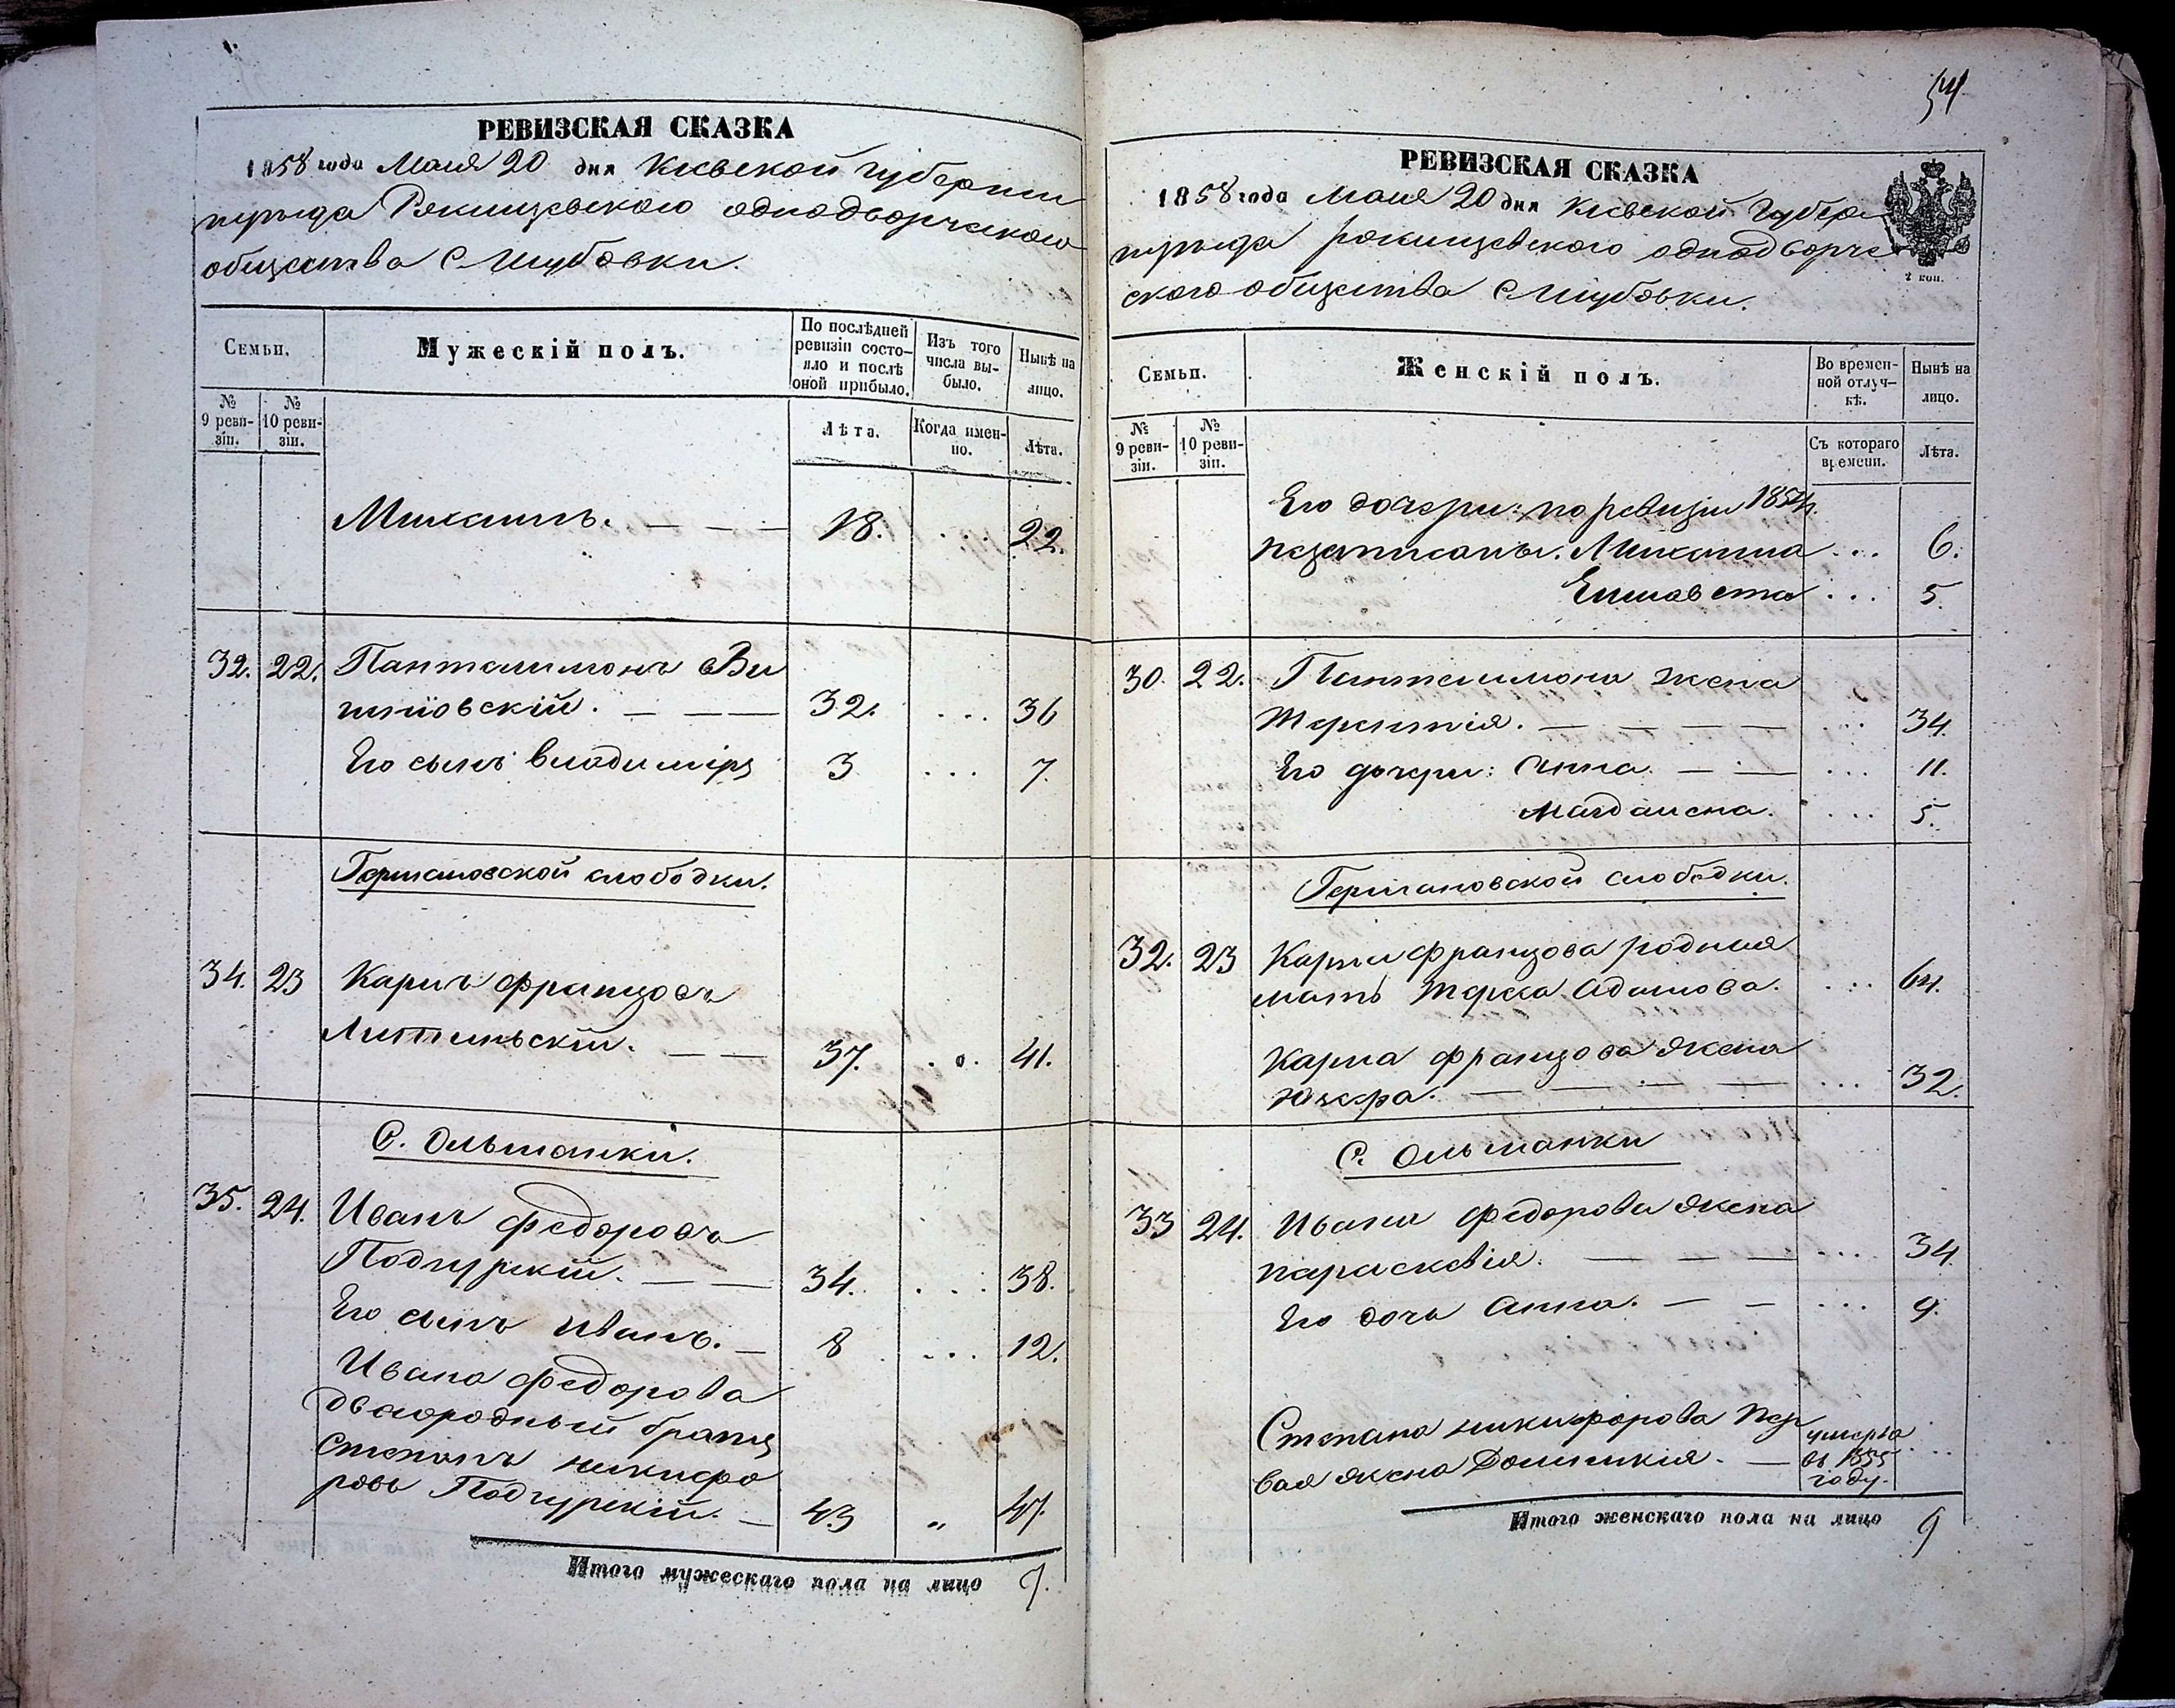 РЕВИЗСКАЯ СКАЗКА
1858 года Маія 20 дня Кіевской Губерніи
уѣзда однодворческаго
общества С. Шубовки.
Семьи.
Мужескій полъ.
По послѣдней ревизіи состо-
яло и послѣ
оной прибыло.
Изъ того
числа вы-
было.
Нынѣ на
лицо.
№
9 реви-
зіи.
№
10 реви-
зіи.
Лѣта.
Когда имен-
но.
Лѣта.
Михаилъ. — — — 18. ... 22.
32. 22. Панталимонъ Ви
шнiовскій. — — — 32. ... 36
Его сынъ Владиміръ 3 ... 7.
Германовской слободки.
34. 23 Карлъ Францовъ
Литинскій. — — 37. ... 41.
С. Ольшанки.
35. 24. Иванъ Федоровъ
Подгурскій. — — 34. ... 38.
Его сынъ Иванъ. — 8 ... 12.
Ивана Федорова
двоюродный братъ
Степанъ Никифо
ровъ Подгурскій. — 43 „ 47.
Итого мужескаго пола на лицо 7.
54
РЕВИЗСКАЯ СКАЗКА
1858 года Маія 20 дня Кіевской Губер
уѣзда однодворче
скаго общества С. Шубовки.
2 коп.
Семьи.
Женскій полъ.
Во времен-
ной отлуч-
кѣ.
Нынѣ на
лицо.
№
9 реви-
зіи.
№
10 реви-
зіи.
Съ котораго
времени.
Лѣта.
Его дочери: по ревизіи 185
незаписаны. ... 6.
Елисавета ... 5.
30. 22. Пантелимона жена
Терентія. — — — — ... 34.
Его дочери: Анна. — — ... 11.
Магдалена. ... 5.
Германовской слободки.
32. 23 Карла Францова родная
мать Тереса Адамова. ... 64.
Карла Францова жена
— — — — ... 32.
С. Ольшанки
33 24. Ивана Федорова жена
Параскевія. — — — .... 34.
Его дочь Анна. — — ... 9.
Степана Никифорова пер
вая жена Доминикія. — умерла
въ 1855
году. ...
Итого женскаго пола на лицо 9